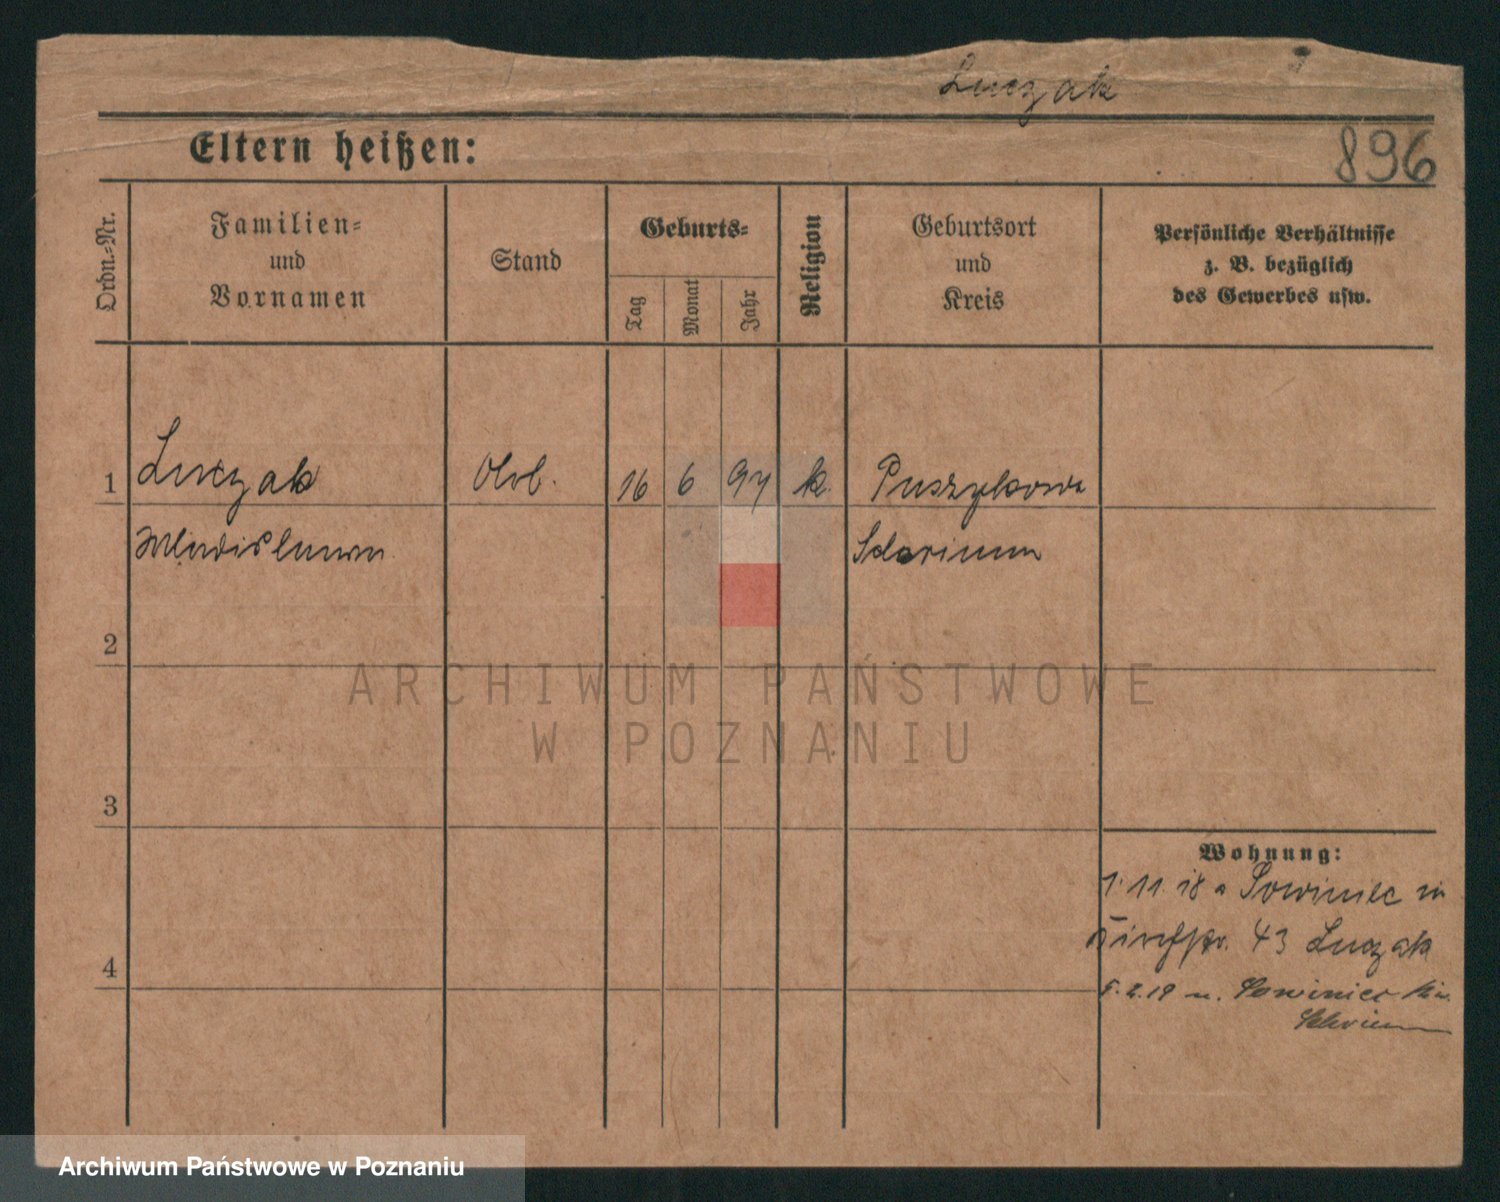 Luczak
Eltern heißen:
896
Ordn.-Nr.
Familien-
und
Vornamen
Stand
Geburts-
Tag
Monat
Jahr
Religion
Geburtsort
und
Kreis
Persönliche Verhältnisse
z. B. bezüglich
des Gewerbes usw.
1 Luczak 16 6 97 k. Puszykowo
Wladislawa Schrimm
2
ARCHIWUM PAŃSTWOWE
W POZNANIU
3
Wohnung:
1.11.18 a Sowiniec in
43 Luczak
4
5.2.19 n. Sowiniec Kr.
Schrimm
Archiwum Państwowe w Poznaniu